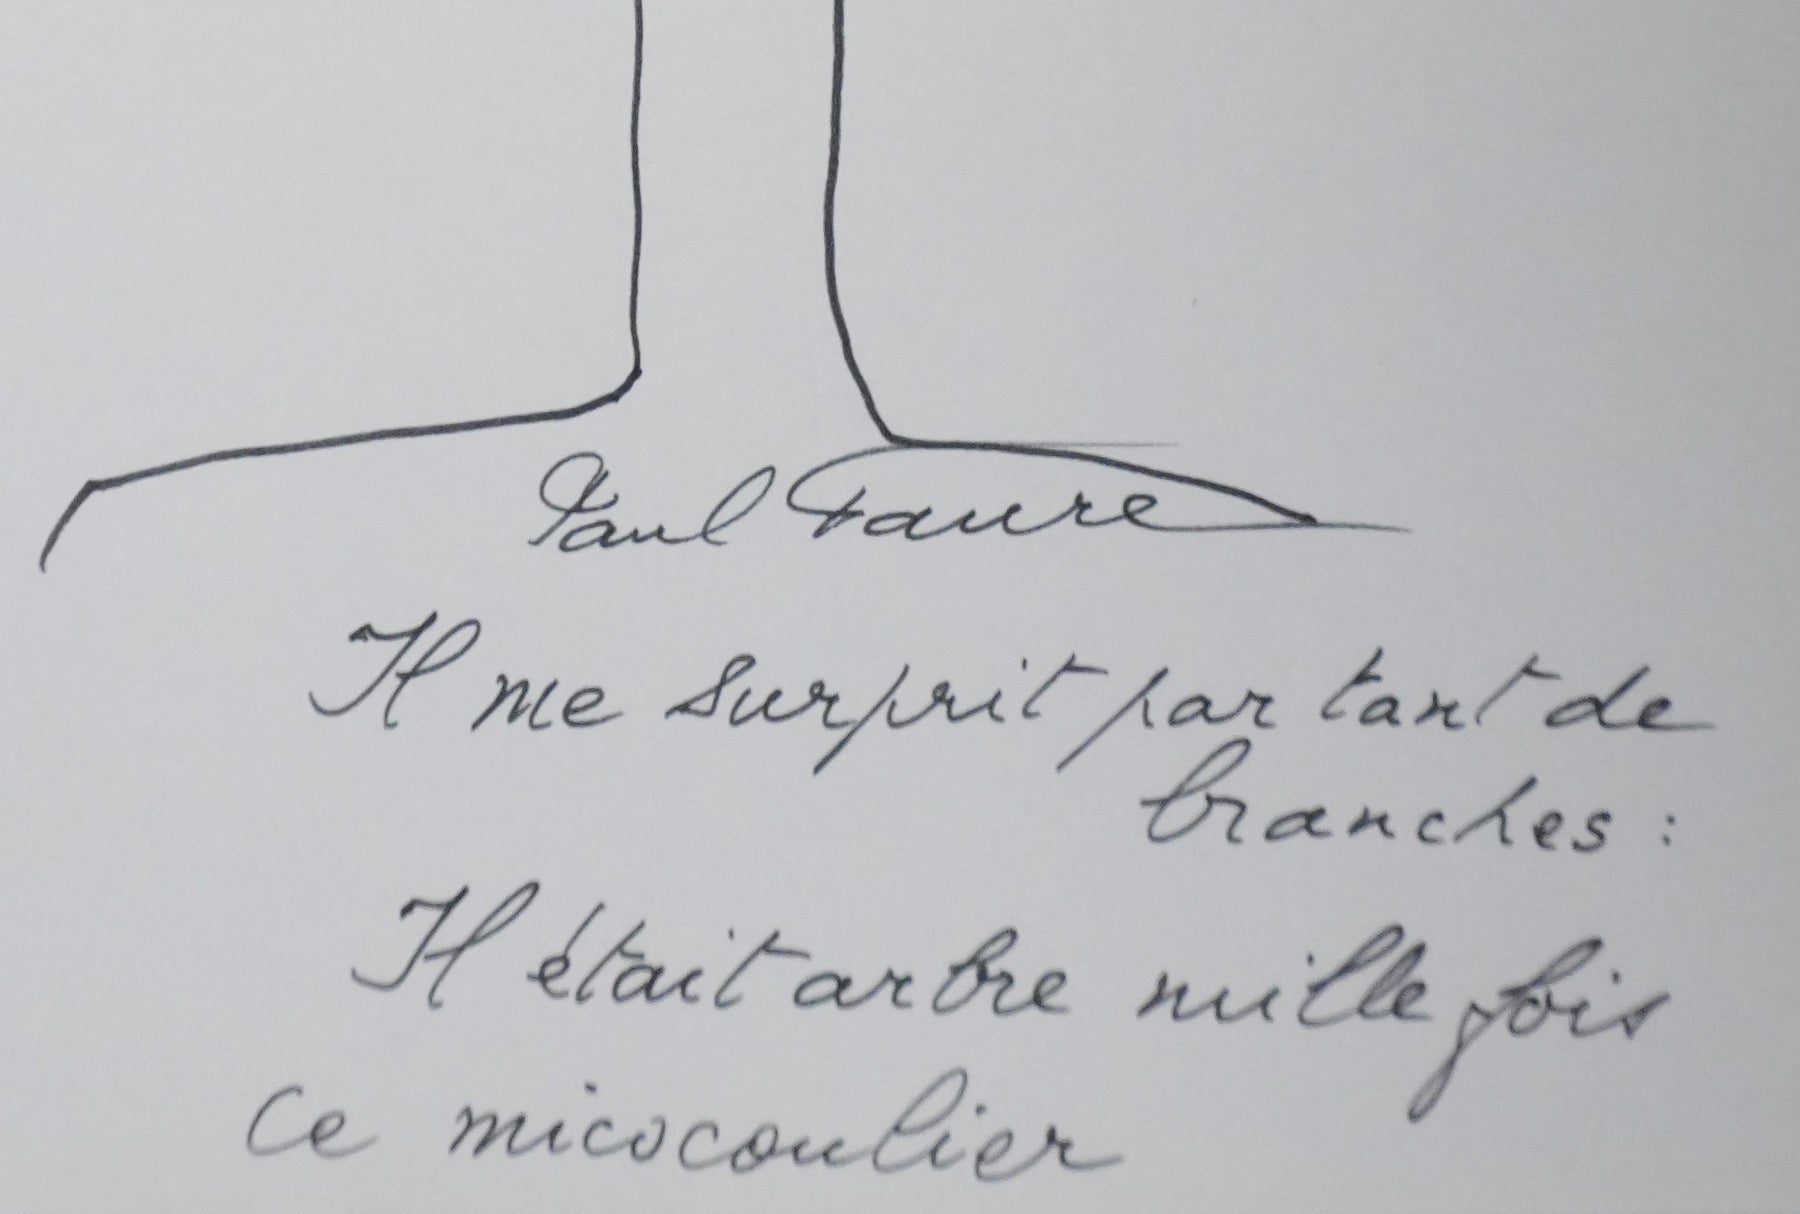 Paul Faure
Il me surprit par tant de
branches :
Il était arbre mille fois
ce micocoulier